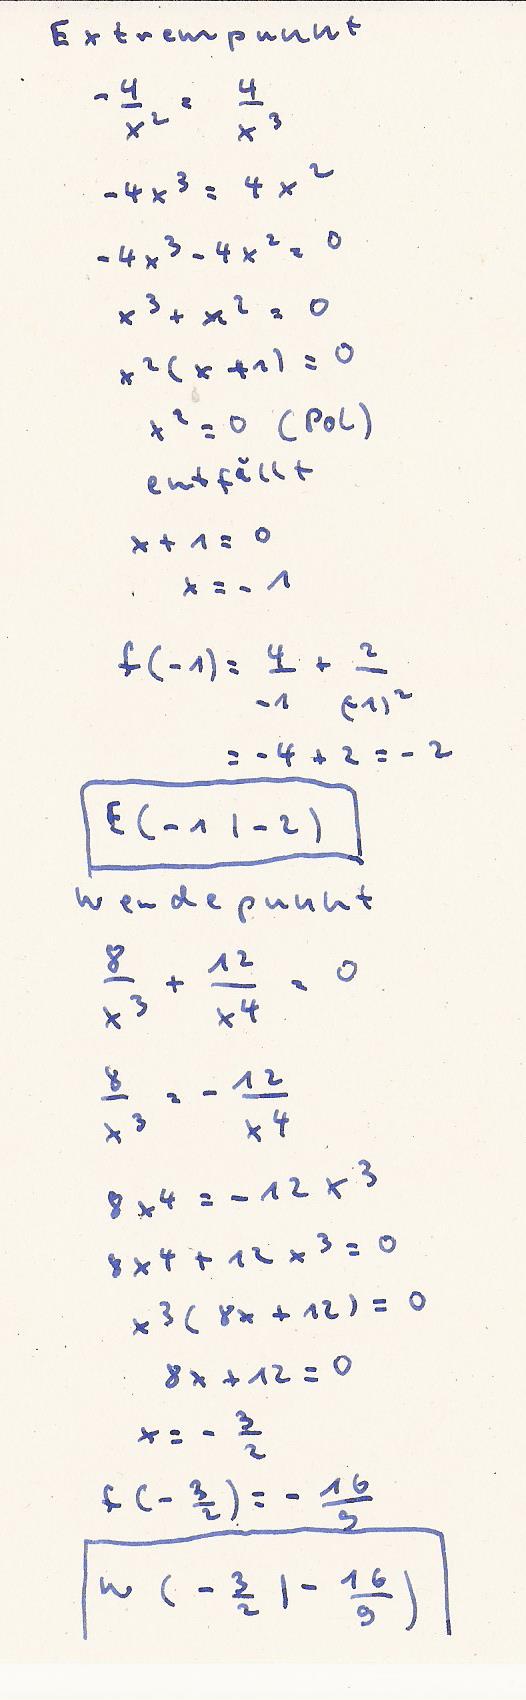 Extrempunkt
-4/x² = 4/x³
-4x³ = 4x²
-4x³ - 4x² = 0
x³ + x² = 0
x²(x+1) = 0
x² = 0 (Pol)
entfällt
x + 1 = 0
x = -1
f(-1) = 4/-1 + 2/(-1)²
= -4 + 2 = -2
E(-1|-2)
Wendepunkt
8/x³ + 12/x⁴ = 0
8/x³ = -12/x⁴
8x⁴ = -12x³
8x⁴ + 12x³ = 0
x³(8x + 12) = 0
8x + 12 = 0
x = -3/2
f(-3/2) = -16/9
W(-3/2|-16/9)